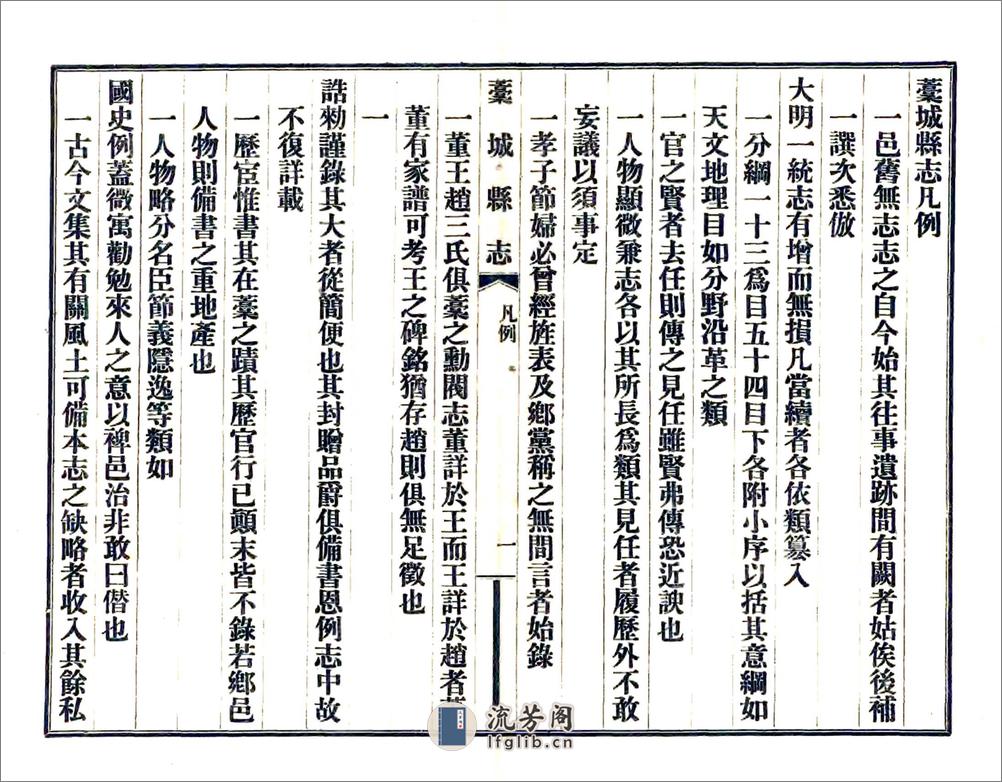 藁城縣志凡例
一邑舊無志志之自今始其往事遺跡間有闕者姑俟後補
一譔次悉倣
大明一統志有增而無損凡當續者各依類纂入
一分綱一十三爲目五十四目下各附小序以括其意綱如
天文地理目如分野沿革之類
一官之賢者去任則傳之見任雖賢弗傳恐近諛也
一人物顯微兼志各以其所長爲類其見任者履歷外不敢
妄議以須事定
一孝子節婦必曾經旌表及鄉黨稱之無間言者始錄
藁城縣志
凡例
一
一董王趙三氏俱藁之勳閥志董詳於王而王詳於趙者
董有家譜可考王之碑銘猶存趙則俱無足徵也
一
誥勑謹錄其大者從簡便也其封贈品爵俱備書恩例志中故
不復詳載
一歷宦惟書其在藁之蹟其歷官行已顛末皆不錄若鄉邑
人物則備書之重地產也
一人物略分名臣節義隱逸等類如
國史例蓋微寓勸勉來人之意以裨邑治非敢曰僭也
一古今文集其有關風土可備本志之缺略者收入其餘私
流芳阁
lfglib.cn